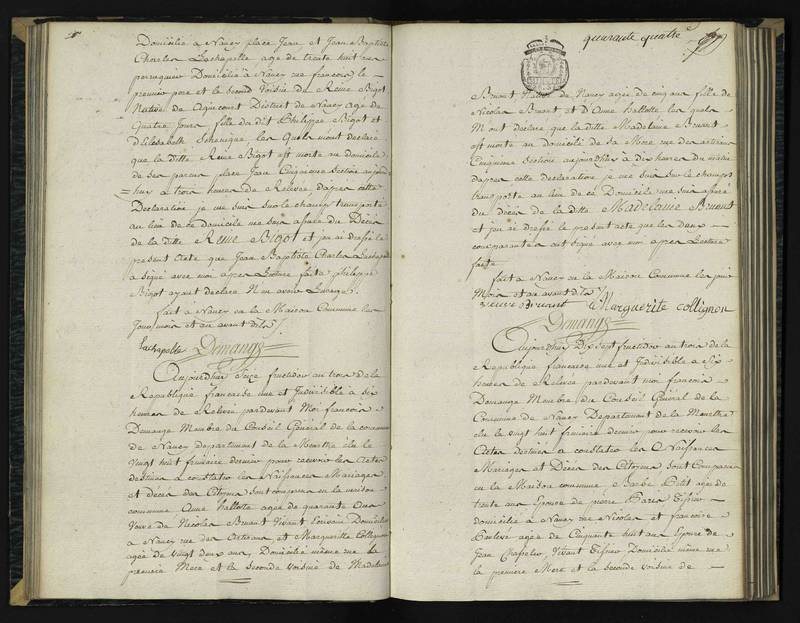 Domicilié à Nancy place Jean et Jean Baptiste
Charles Lachapelle agé de trente huit ans
perruquier Domicilié à Nancy rue francois le
premier pere et le second Voisin du Reine Bigot
Native de District de Nancy agée de
Quatre Jours, fille du dit Philippe Bigot et
d'Elisabeth les Quels m'ont declaré
que la ditte Reine Bigot est morte au domicile
de ses pere et place Jean Cinquieme Section aujourd
huy à trois heures de Relevée, dapres cette
Declaration je me suis sur le champ transporté
au lieu de ce domicile me suis assuré du Décès
de la ditte Reine Bigot et j'en ai dressé le
present Acte que Jean Baptiste Charles Lachapelle
a signé avec moi apres Lecture faite philippe
Bigot ayant declaré N'en avoir l'usage.
fait à Nancy en la Maison Commune les
Jour, mois et an avant dits
Lachapelle Demange
Aujourdhui Seize fructidor an trois de la
Republique francaise une et Indivisible à six
heures de Relevée pardevant Moi francois
Demange Membre du Conseil Général de la commune
de Nancy departement de la Meurthe élu le
Vingt huit frimaire dernier pour recevoir les Actes
destinés à constater les Naissances Mariages
et décès des Citoyens sont comparus en la maison
commune Anne hallotte agée de quarante Ans
Veuve de Nicolas Bruant Vivant Ecrivain Domiciliée
à Nancy rue des Artisans et Marguerite Collignon
agée de Vingt deux ans, Domiciliée même rue la
premiere Mere et la seconde voisine de Madelaine
quarante quatre
Bruant Native de Nancy agée de cinq ans fille de
Nicolas Bruant et d'Anne hallotte les quels
M'ont declaré que la ditte Madelaine Bruant
est morte au domicile de sa Mere rue des artisans
Cinquieme Section aujourdhui à dix heures du matin
dapres cette declaration je me suis sur le champ
transporté au lieu de ce Domicile me suis assuré
du décès de la ditte Madelaine Bruant
et j'en ai dressé le present acte que les deux
comparantes ont signé avec moi apres Lecture
faite
fait à Nancy en la Maison Commune les jour
Mois et an avant dits
veuve Bruant Marguerite collignon
Demange
Aujourdhui Dix Sept fructidor an trois de la
Republique francaise une et Indivisible à Six
heures de Relevée pardevant moi francois
Demange Membre du Conseil Général de la
Commune de Nancy Departement de la Meurthe
élu le vingt huit frimaire dernier pour recevoir les
Actes destinés à constater les Naissances
Mariages et Décès des Citoyens sont Comparus
en la Maison commune Barbe Petit agée de
trente ans Epouse de pierre
domiciliée à Nancy rue Nicolas et francoise
agée de Cinquante huit ans Epouse de
Jean Chapelier Vivant Domiciliée même rue
la premiere Mere et la seconde voisine de